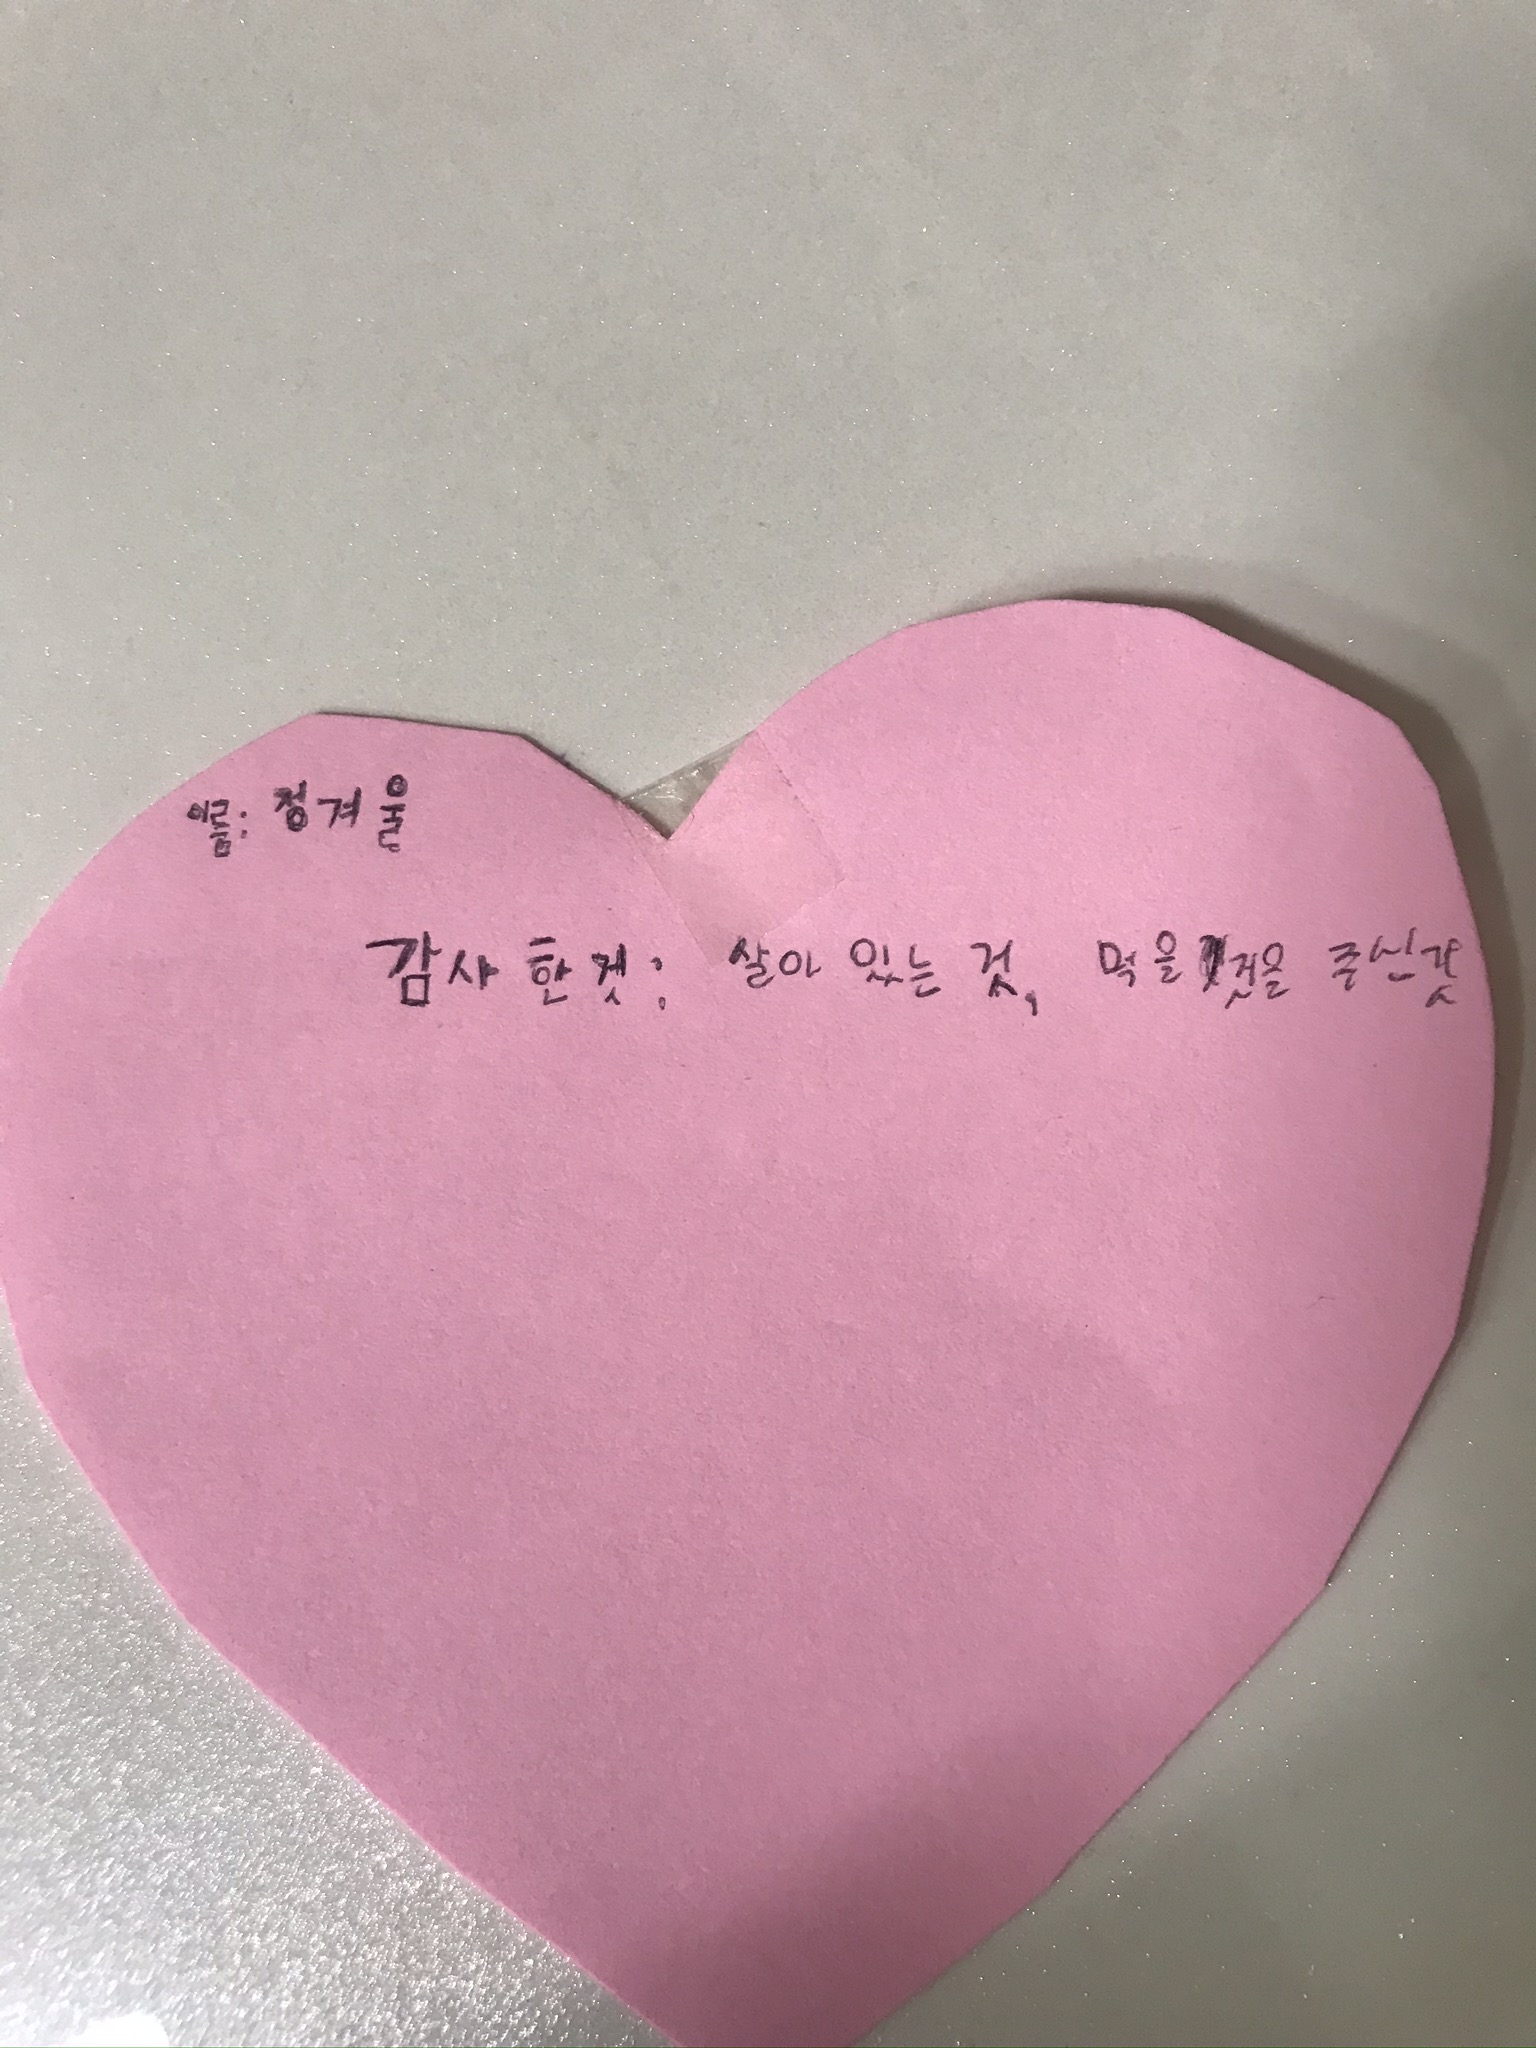 이름: 정겨울
감사한것: 살아 있는 것, 먹을 것을 주신것